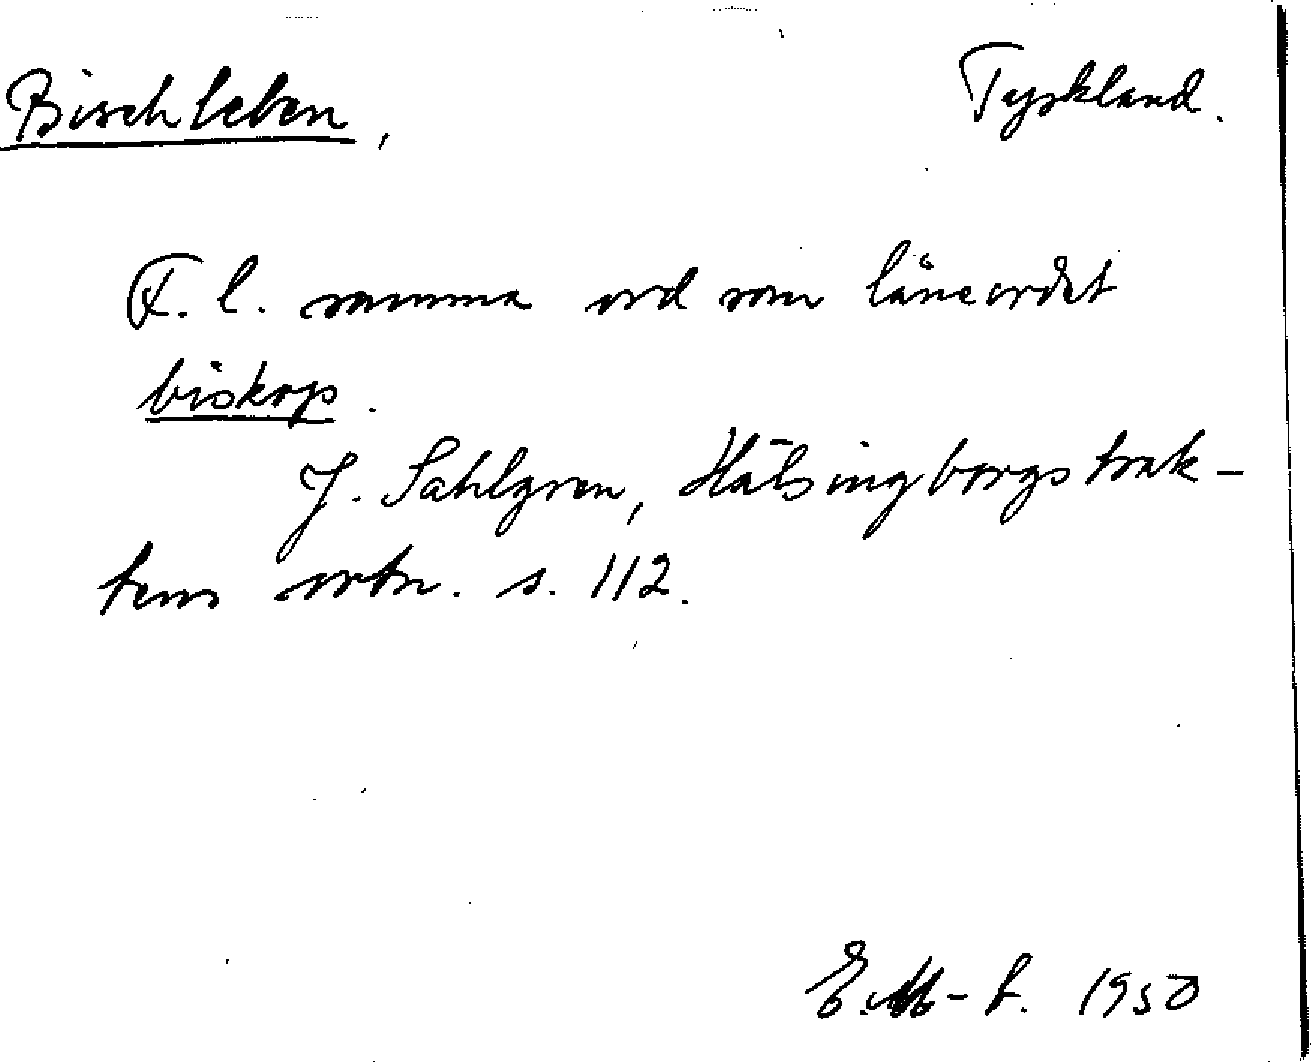 Bischleben, Tyskland.
F. l. samma ord som låneordet
biskop.
J. Sahlgren, Hälsingborgstrak-
tens ortn. s. 112.
E.M-L. 1950